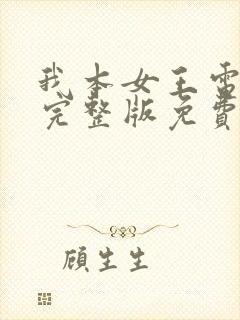 我本女王雷
完整版免費
顧生生